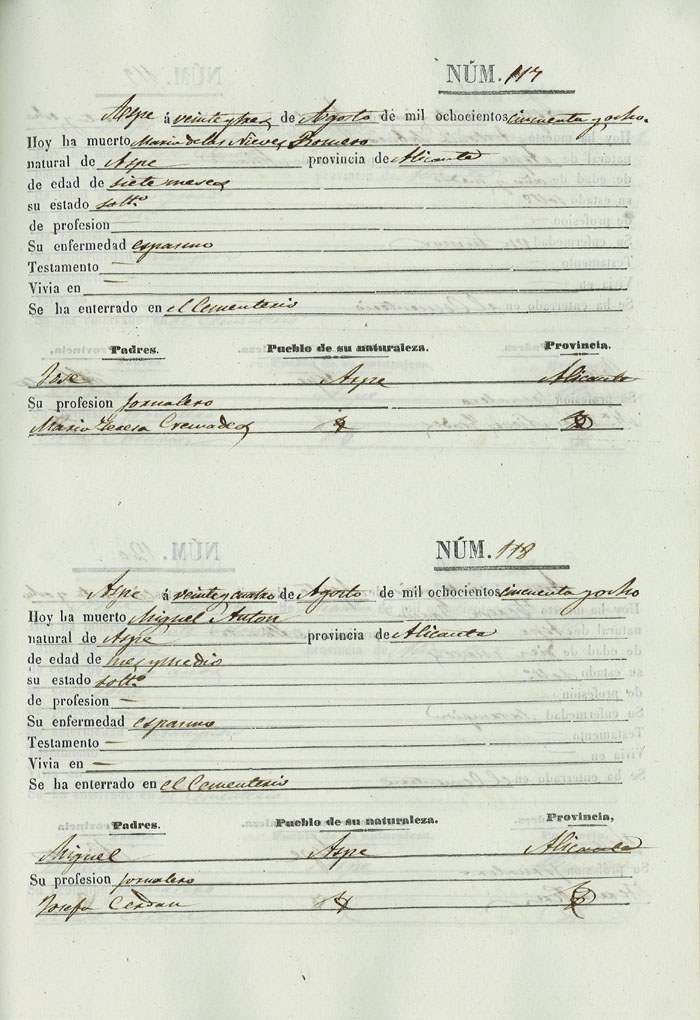 NÚM. 117
Aspe á veinte y tres de Agosto de mil ochocientos cincuenta y ocho.
Hoy ha muerto Maria de las Nieves Romero
natural de Aspe provincia de Alicante
de edad de siete meses
su estado soltº
de profesion
Su enfermedad espasmo
Testamento —
Vivia en —
Se ha enterrado en el Cementerio
Padres. Pueblo de su naturaleza. Provincia.
Jose Aspe Alicante
Su profesion jornalero
Maria Teresa Cremades
NÚM. 118
Aspe á veinte y cuatro de Agosto de mil ochocientos cincuenta y ocho
Hoy ha muerto Miguel Anton
natural de Aspe provincia de Alicante
de edad de mes y medio
su estado soltº
de profesion —
Su enfermedad espasmo
Testamento —
Vivia en —
Se ha enterrado en el Cementerio
Padres. Pueblo de su naturaleza. Provincia,
Miguel Aspe Alicante
Su profesion jornalero
Josefa Cerdan